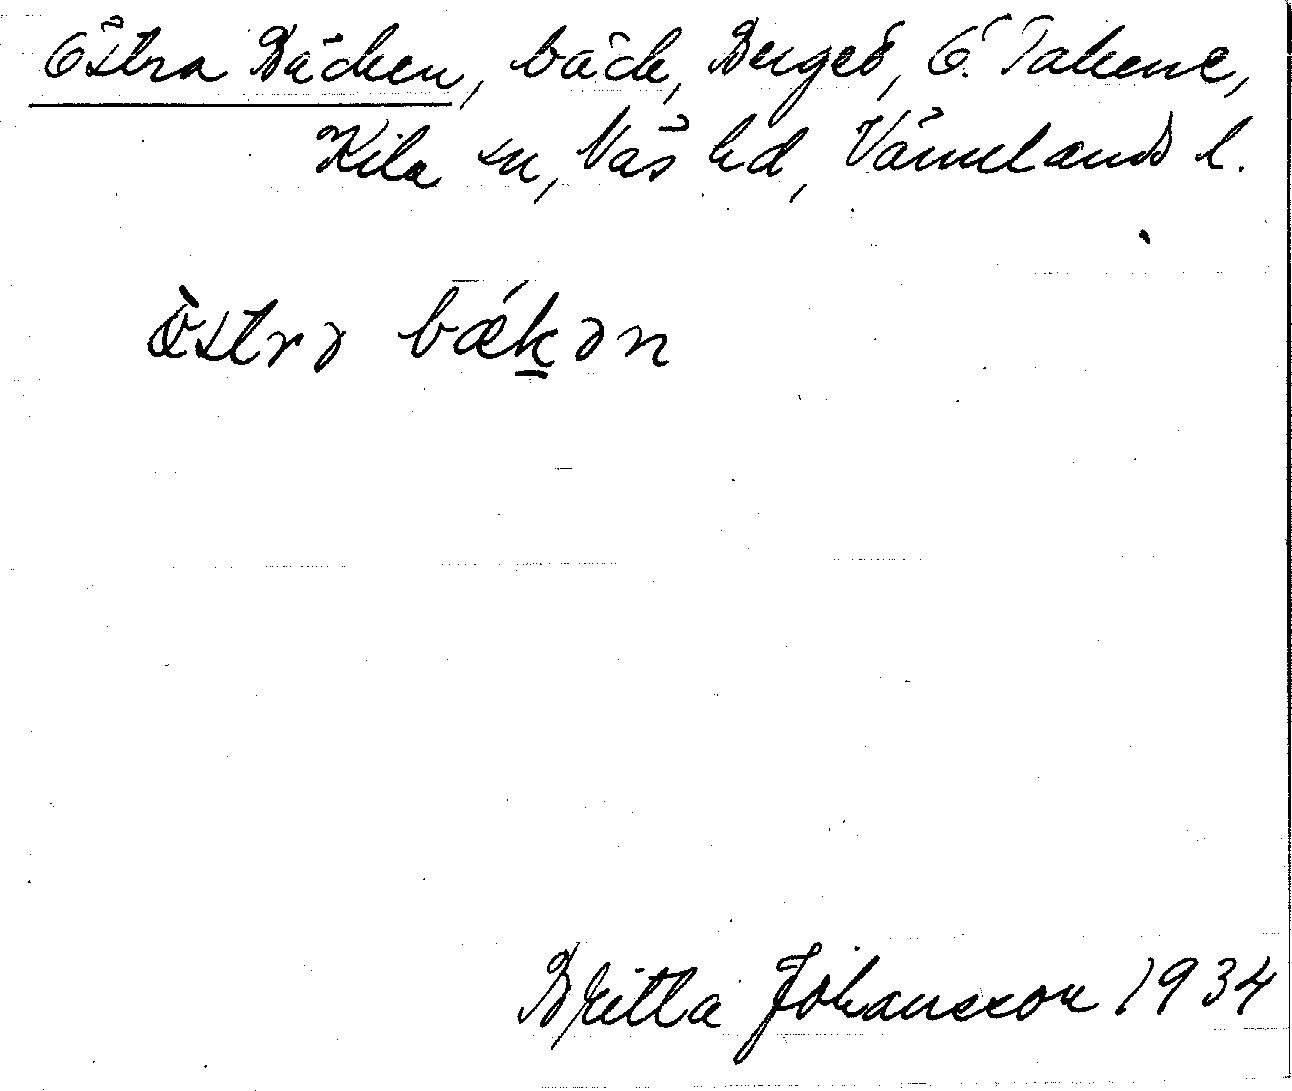 Östra Bäcken, bäck, Berget, Ö. Takene,
Kila sn, Näs hd, Värmlands l.
östrə bækən
Britta Johansson 1934